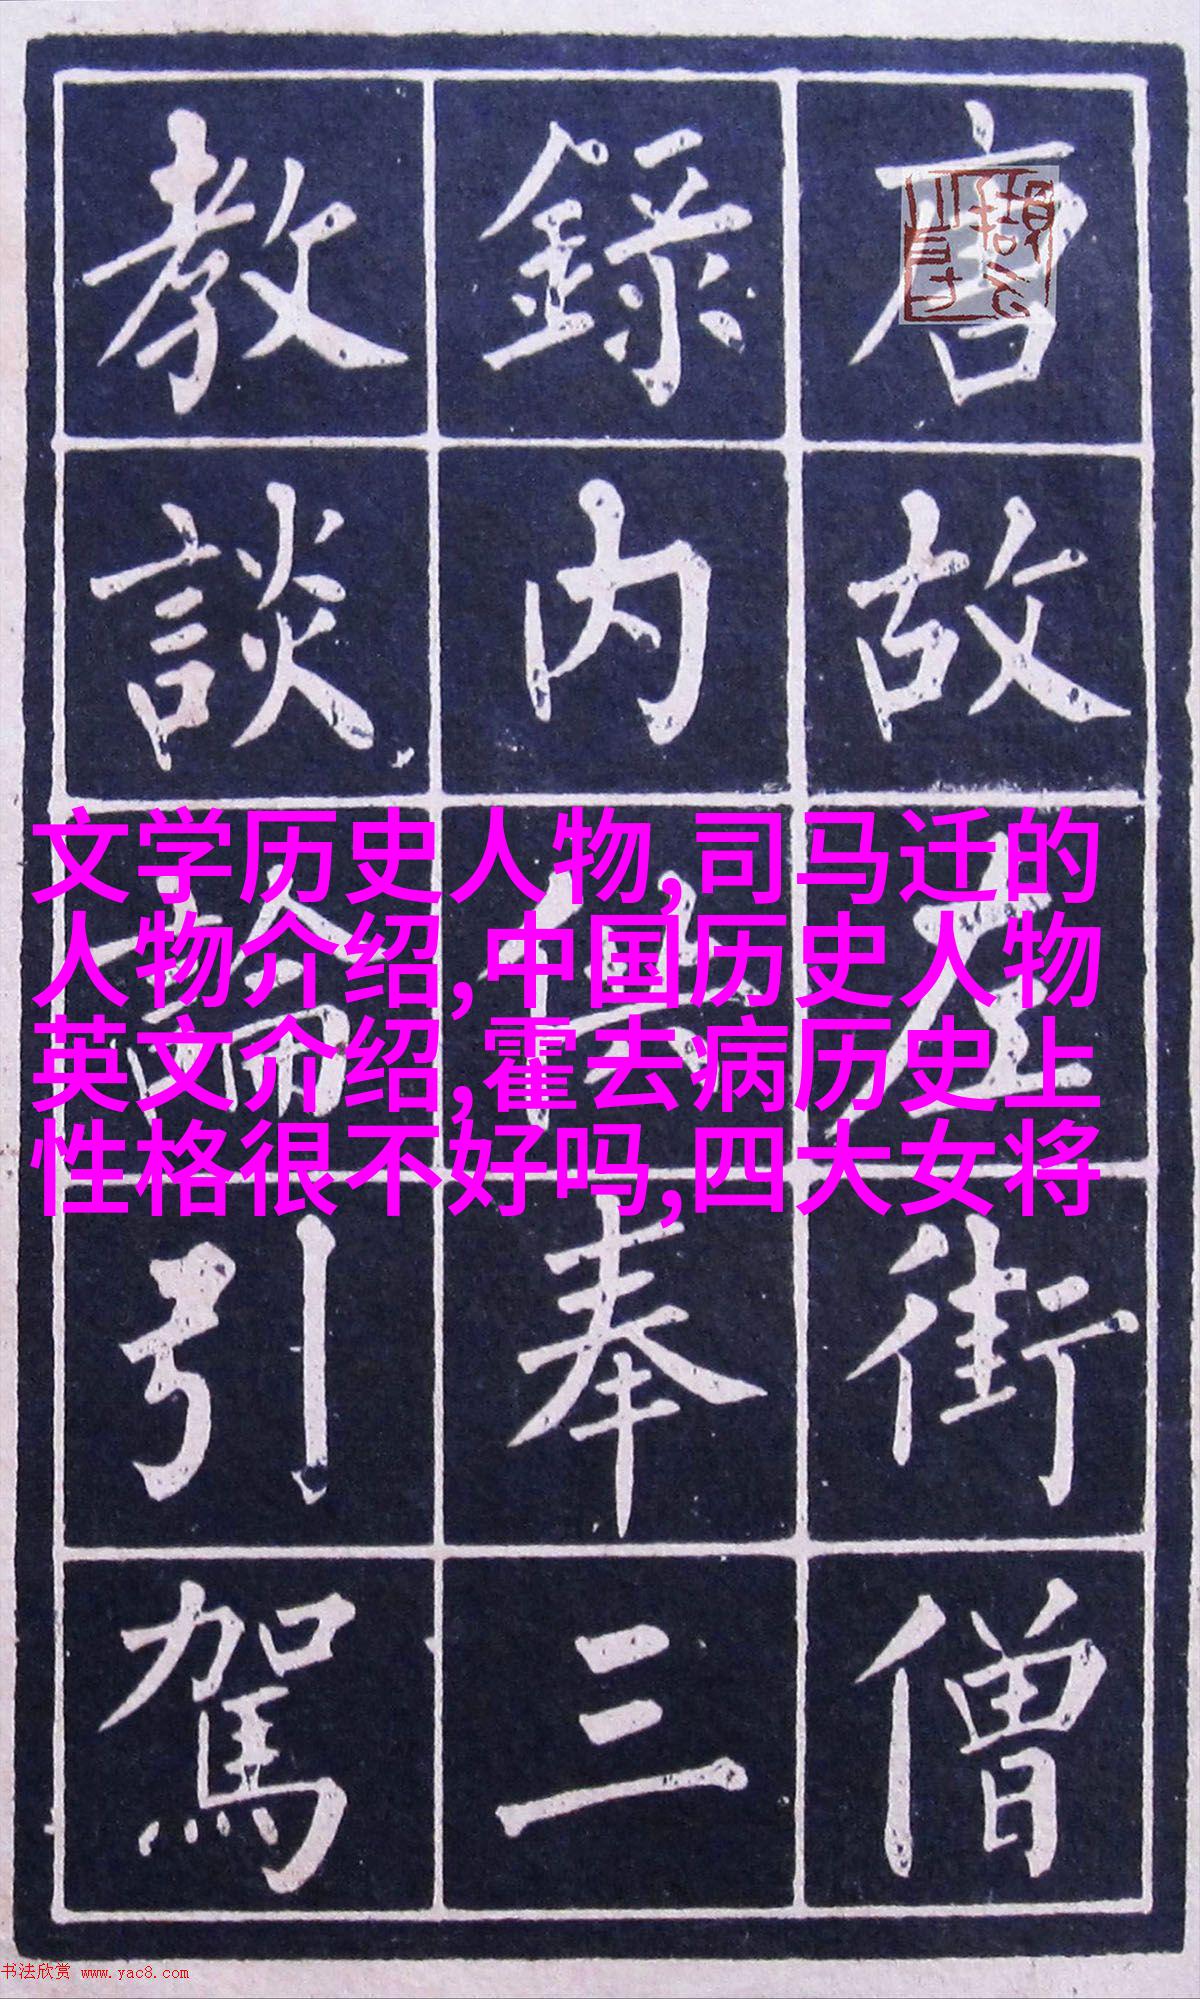 唐故左街僧
錄内供奉三
教談論引駕
文学历史人物,司马迁的
人物介绍,中国历史人物
英文介绍,霍去病历史上
性格很不好吗,四大女将
书法欣赏 www.yac8.com